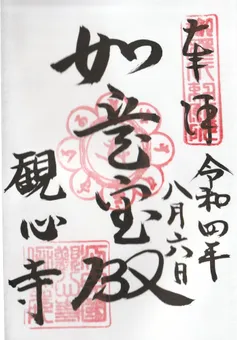 奉拝
令和四年
八月六日
如意宝殿
観心寺